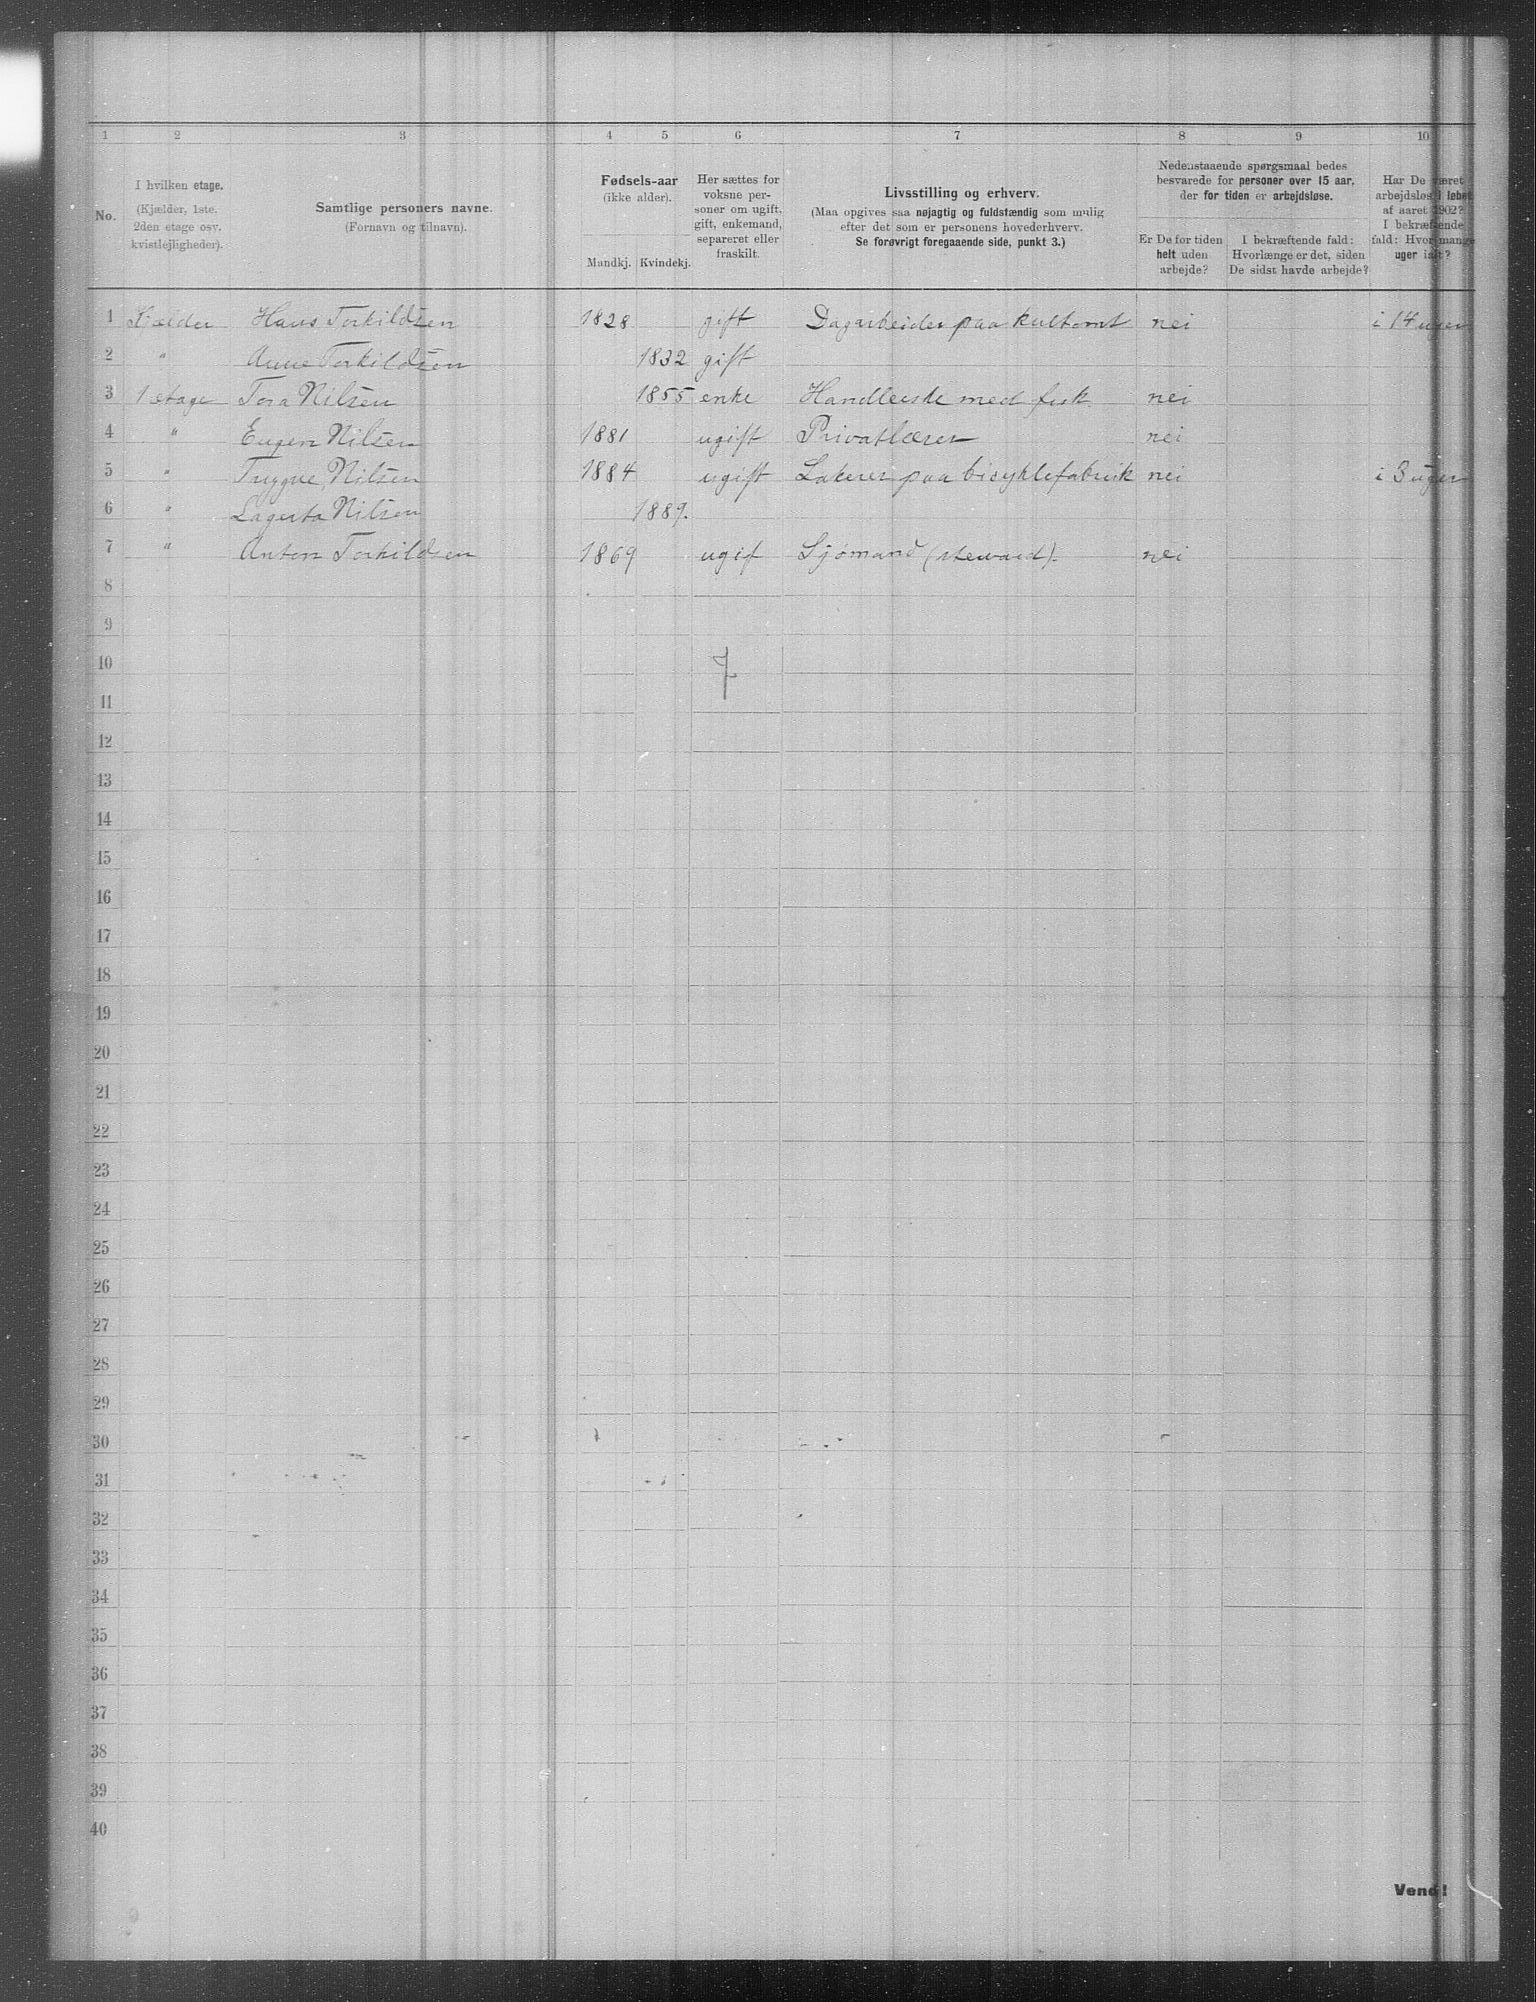 1 2 3 4 5 6 7 8 9 10
No.
I hvilken etage.
(Kjælder, 1ste.
2den etage osv.
kvistlejligheder).
Samtlige personers navne.
(Fornavn og tilnavn).
Fødsels-aar
(ikke alder).
Mandkj. Kvindekj.
Her sættes for
voksne per-
soner om ugift,
gift, enkemand,
separeret eller
fraskilt.
Livsstilling og erhverv.
(Maa opgives saa nøjagtig og fuldstændig som mulig
efter det som er personens hovederhverv.
Se forøvrigt foregaaende side, punkt 3.)
Nedenstaaende spørgsmaal bedes
besvarede for personer over 15 aar,
der for tiden er arbejdsløse.
Er De for tiden
helt uden
arbejde?
I bekræftende fald:
Hvorlænge er det, siden
De sidst havde arbejde?
Har De været
arbejdsløs i løbet
af aaret 1902?
I bekræftende
fald: Hvor mange
uger ialt?
1 Kjælder Hans Torkildsen 1828 gift Dagarbeider paa kultomt nei i 14 uger
2 " Anne Torkildsen 1832 gift
3 1 etage Tora Nilsen 1855 enke med fisk nei
4 " Eugen Nilsen 1881 ugift Privatlærer nei
5 " Trygve Nilsen 1884 ugift Lakerer paa bicyklefabrik nei i 3 uger
6 " Lagerta Nilsen 1889.
7 " Anton Torkildsen 1869 ugif Sjømand (steward). nei
8
9
10 7
11
12
13
14
15
16
17
18
19
20
21
22
23
24
25
26
27
28
29
30
31
32
33
34
35
36
37
38
39
40
Vend!